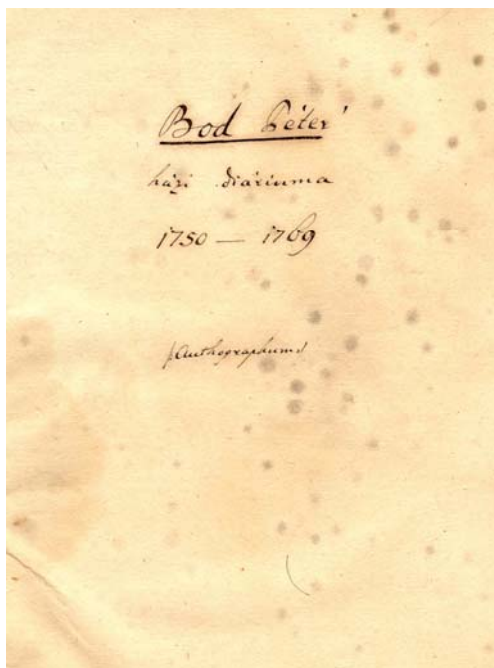 Bod Péter'
házi diáriuma
1750 — 1769
(Authographum)